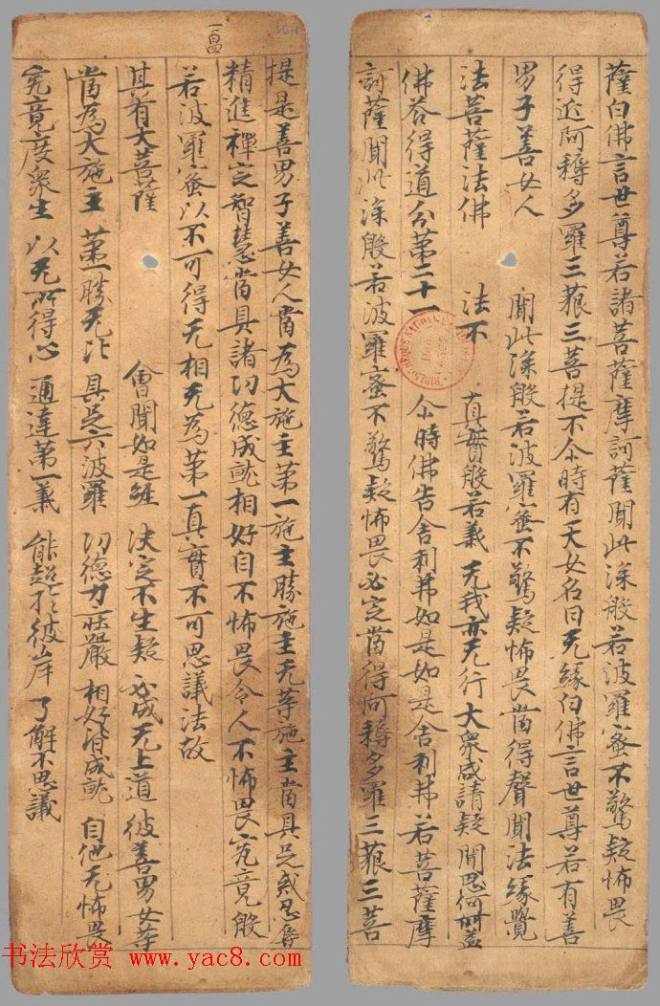 薩白佛言世尊若諸菩薩摩訶薩聞此深般若波羅蜜不驚疑怖畏
得近阿耨多羅三藐三菩提不尒時有天女名曰无緣白佛言世尊若有善
男子善女人 聞此深般若波羅蜜不驚疑怖畏當得聲聞法緣覺
法菩薩法佛 法不 真實般若義 无我亦无行 大衆咸請疑 聞思何所蓋
佛荅得道分第二十一 尒時佛告舍利弗如是如是舍利弗若菩薩摩
訶薩聞此深般若波羅蜜不驚疑怖畏必定當得阿耨多羅三藐三菩
一百四
提是善男子善女人當為大施主第一施主勝施主无等施主當具足戒忍辱
精進禪定智慧當具諸功德成就相好自不怖畏令人不怖畏究竟般
若波羅蜜以不可得无相无為第一真實不可思議法故
其有大菩薩 會聞如是經 決定不生疑 必成无上道 彼善男女等
當為大施主 第一勝无比 具足六波羅 功德才莊嚴 相好皆成就 自他无怖畏
究竟度衆生 以无所得心 通達第一義 能超於彼岸 了解不思議
书法欣赏 www.yac8.com